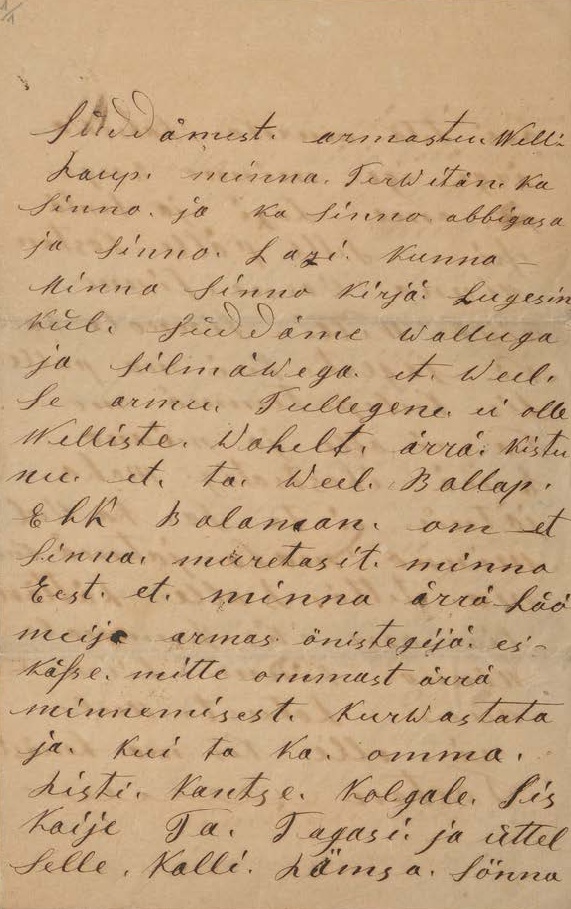 1/1
Süddämest. armastu. Welli
Laup. minna. Terwitän. ka
Sinno. ja ka Sinno. abbigasa
ja Sinno. Lazi. kunna —
Minna Sinno kirjä. Lugesin
kül. Süddäme walluga
ja Silmäwega. et. weel.
Se armu. Tullegene. ei olle
Welliste. wahelt. ärrä. kistu
nu. et. ta. weel. Ballap.
Ehk Balaman. om et
Sinna. murretasit. minna
Eest. et. minna ärrä Löö
meije armas. önistegijä. es-
kässe. mitte ommast ärrä
minnemisest. kurwastata
ja. kui ta ka. omma.
Risti. kantse. kolgale. Sis
kaije Ta. Tagasi. ja üttel
Selle. kalli. Lämsa. Sönna